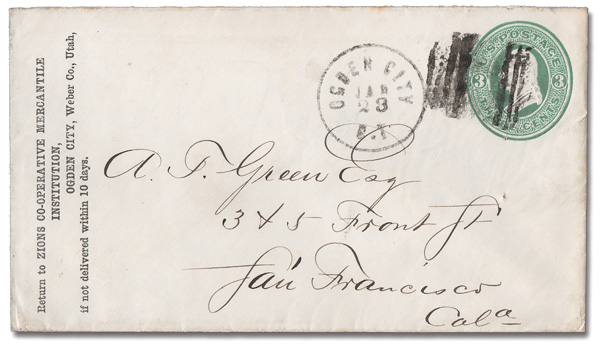 Return to ZIONS CO-OPERATIVE MERCANTILE
INSTITUTION,
OGDEN CITY, Weber Co., Utah,
if not delivered within 10 days.
OGDEN CITY
JAN
23
U.T.
U.S. POSTAGE
3 3
THREE CENTS
A. F. Green Esq
3 & 5 Front St
San Francisco
Cala